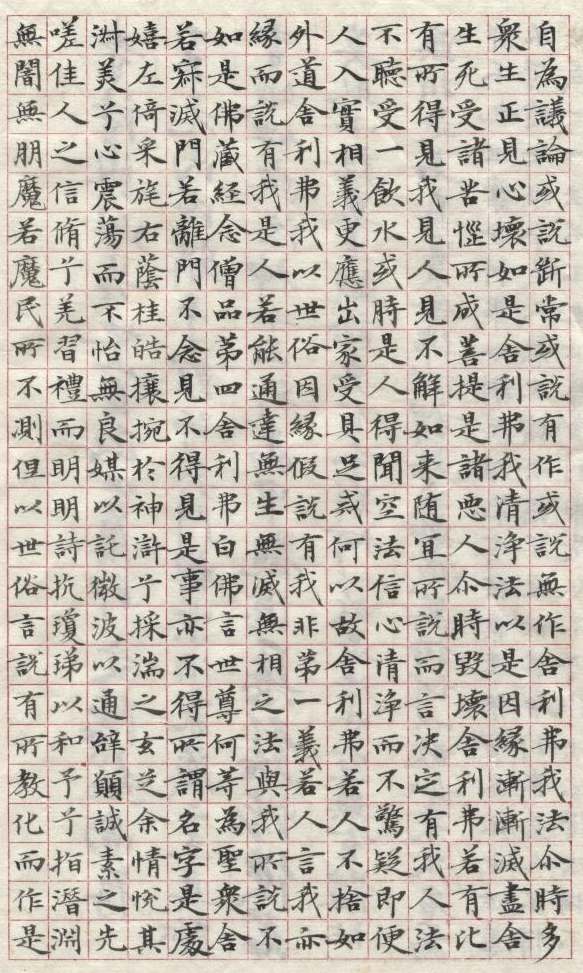 自為議論或說斷常或說有作或說無作舍利弗我法尒時多
衆生正見心壞如是舍利弗我清浄法以是因緣漸漸滅盡舍
生死受諸苦惱所成菩提是諸惡人尒時毀壞舍利弗若有比
有所得見我見人見不解如来随宜所說而言决定有我人法
不聽受一飲水或時是人得聞空法信心清浄而不驚疑即便
人入實相義更應出家受具足或何以故舍利弗若人不捨如
外道舍利弗我以世俗因緣假說有我非第一義若人言我亦
緣而說有我是人若能通達無生無滅無相之法與我所說不
如是佛蔵經念僧品第四舍利弗白佛言世尊何等為聖衆舍
若寂滅門若離門不念見不得見是事亦不得所謂名字是處
嬉左倚采旄右蔭桂皓攘捥於神滸兮採湍之玄芝余情悅其
淑美兮心震蕩而不怡無良媒以託微波以通辞願誠素之先
嗟佳人之信脩兮羌習禮而明明詩抗瓊珶以和予兮指潛淵
無闇無朋魔若魔民所不測但以世俗言說有所教化而作是